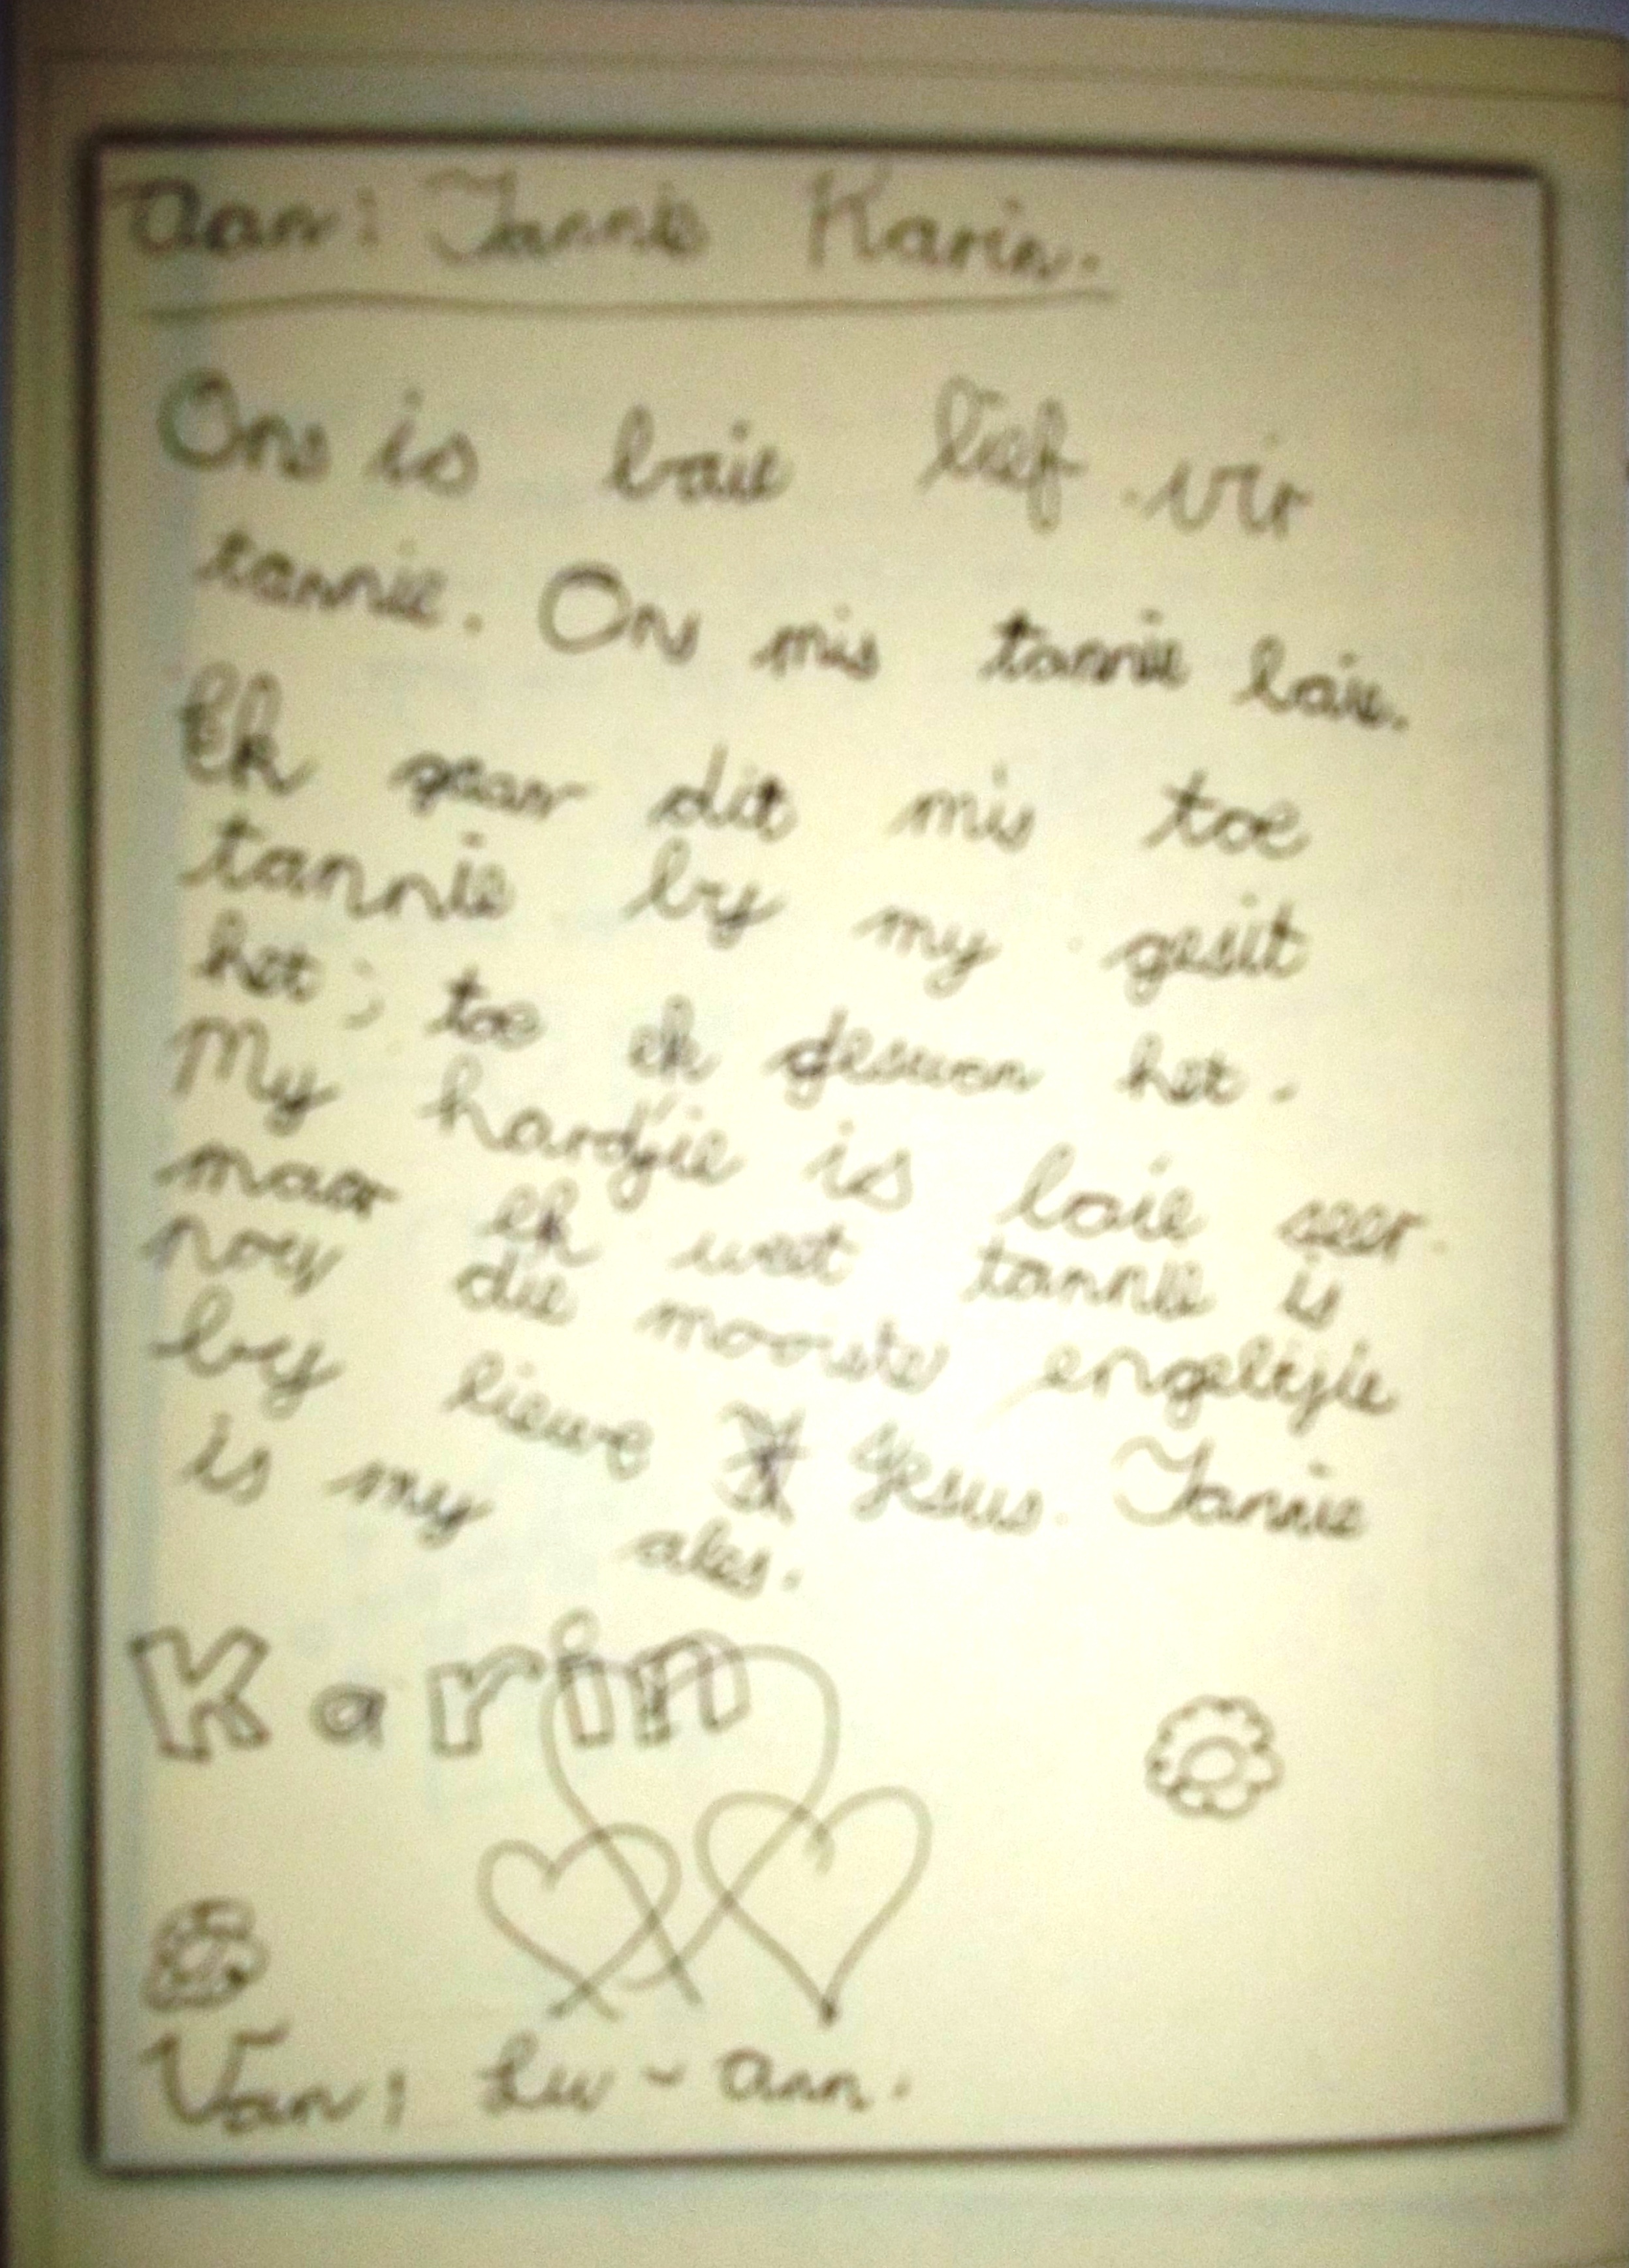 Aan: Tannie Karin.
Ons is baie lief vir
tannie. Ons mis tannie baie.
Ek gaan dit mis toe
tannie by my gesit
het; toe ek geswem het.
My hardjie is baie seer.
maar ek weet tannie is
nou die mooiste engeltjie
by liewe Jesus. Tannie
is my alles.
Karin
Van: Lu - ann.